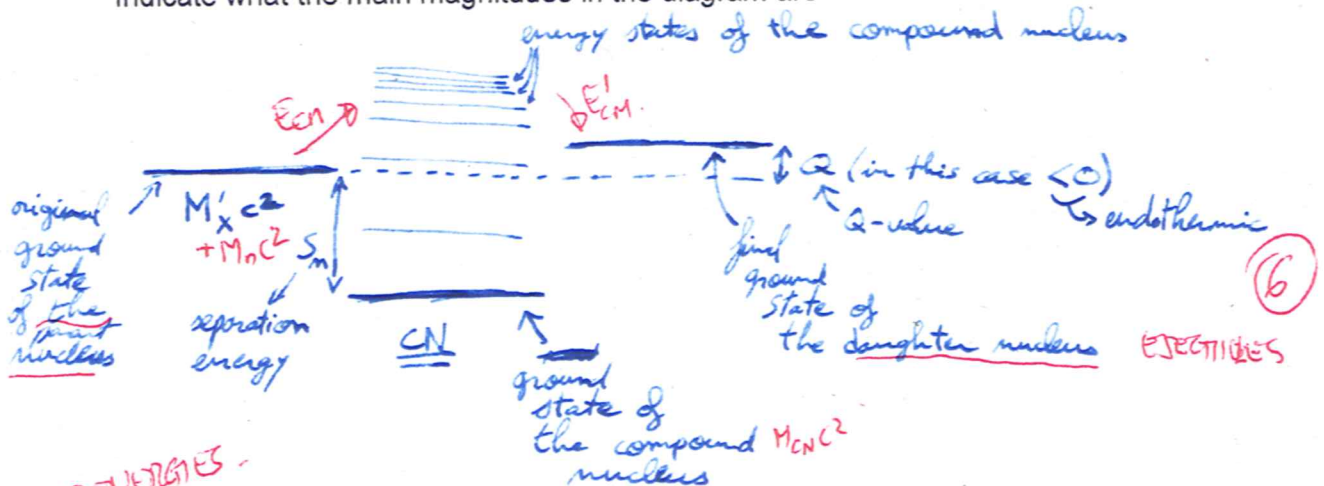 indicate what the main magnitudes in the diagram are
energy states of the compound nucleus
E_CM
E'_CM.
M'_X c²
+ M_n c²
S_n
original
ground
state
of the
nucleus
separation
energy
CN
ground
state of
the compound M_CN c²
nucleus
Q (in this case <0)
Q-value
endothermic
final
ground
state of
the daughter nucleus
6